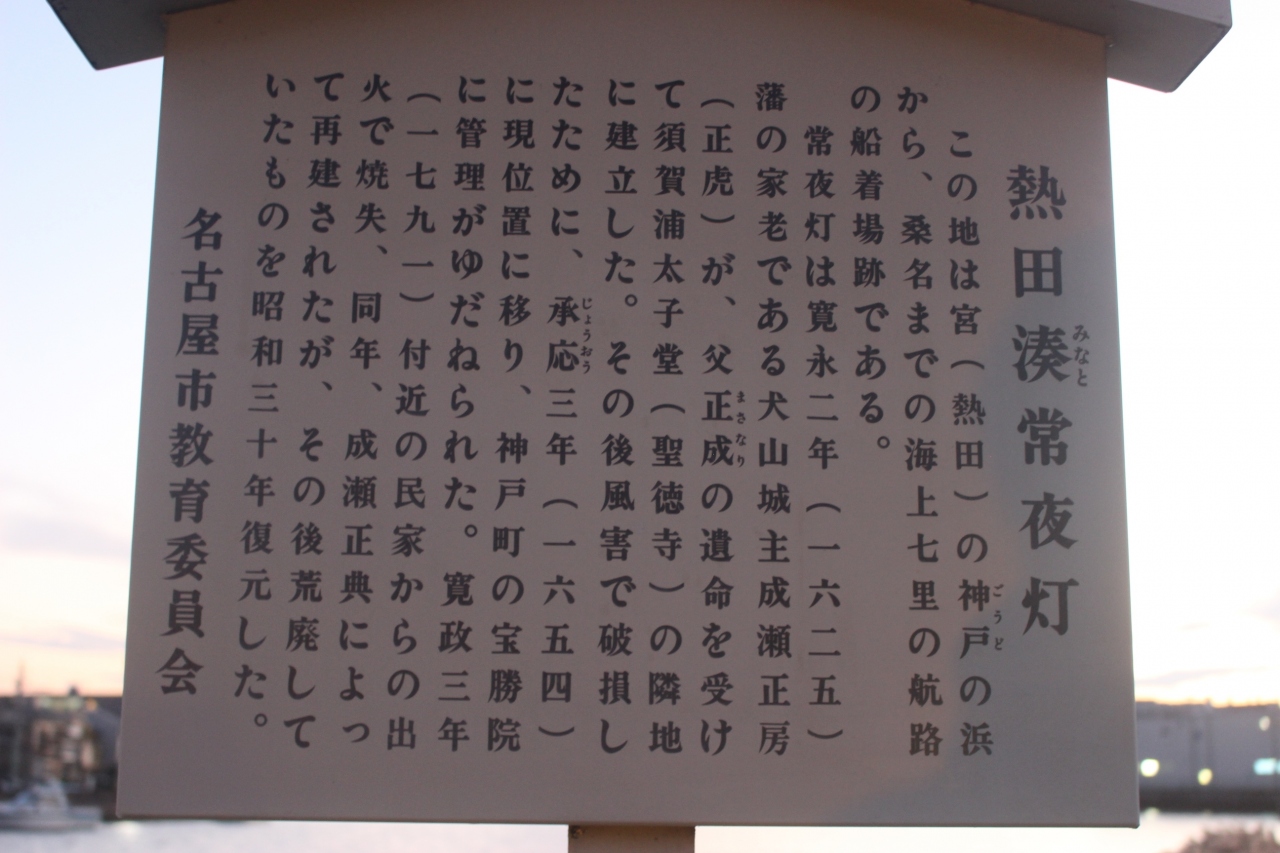 熱田湊常夜灯
みなと
この地は宮（熱田）の神戸の浜
ごうど
から、桑名までの海上七里の航路
の船着場跡である。
常夜灯は寛永二年（一六二五）
藩の家老である犬山城主成瀬正房
（正虎）が、父正成の遺命を受け
まさなり
て須賀浦太子堂（聖徳寺）の隣地
に建立した。その後風害で破損し
たために、承応三年（一六五四）
じょうおう
に現位置に移り、神戸町の宝勝院
に管理がゆだねられた。寛政三年
（一七九一）付近の民家からの出
火で焼失、同年、成瀬正典によっ
て再建されたが、その後荒廃して
いたものを昭和三十年復元した。
名古屋市教育委員会